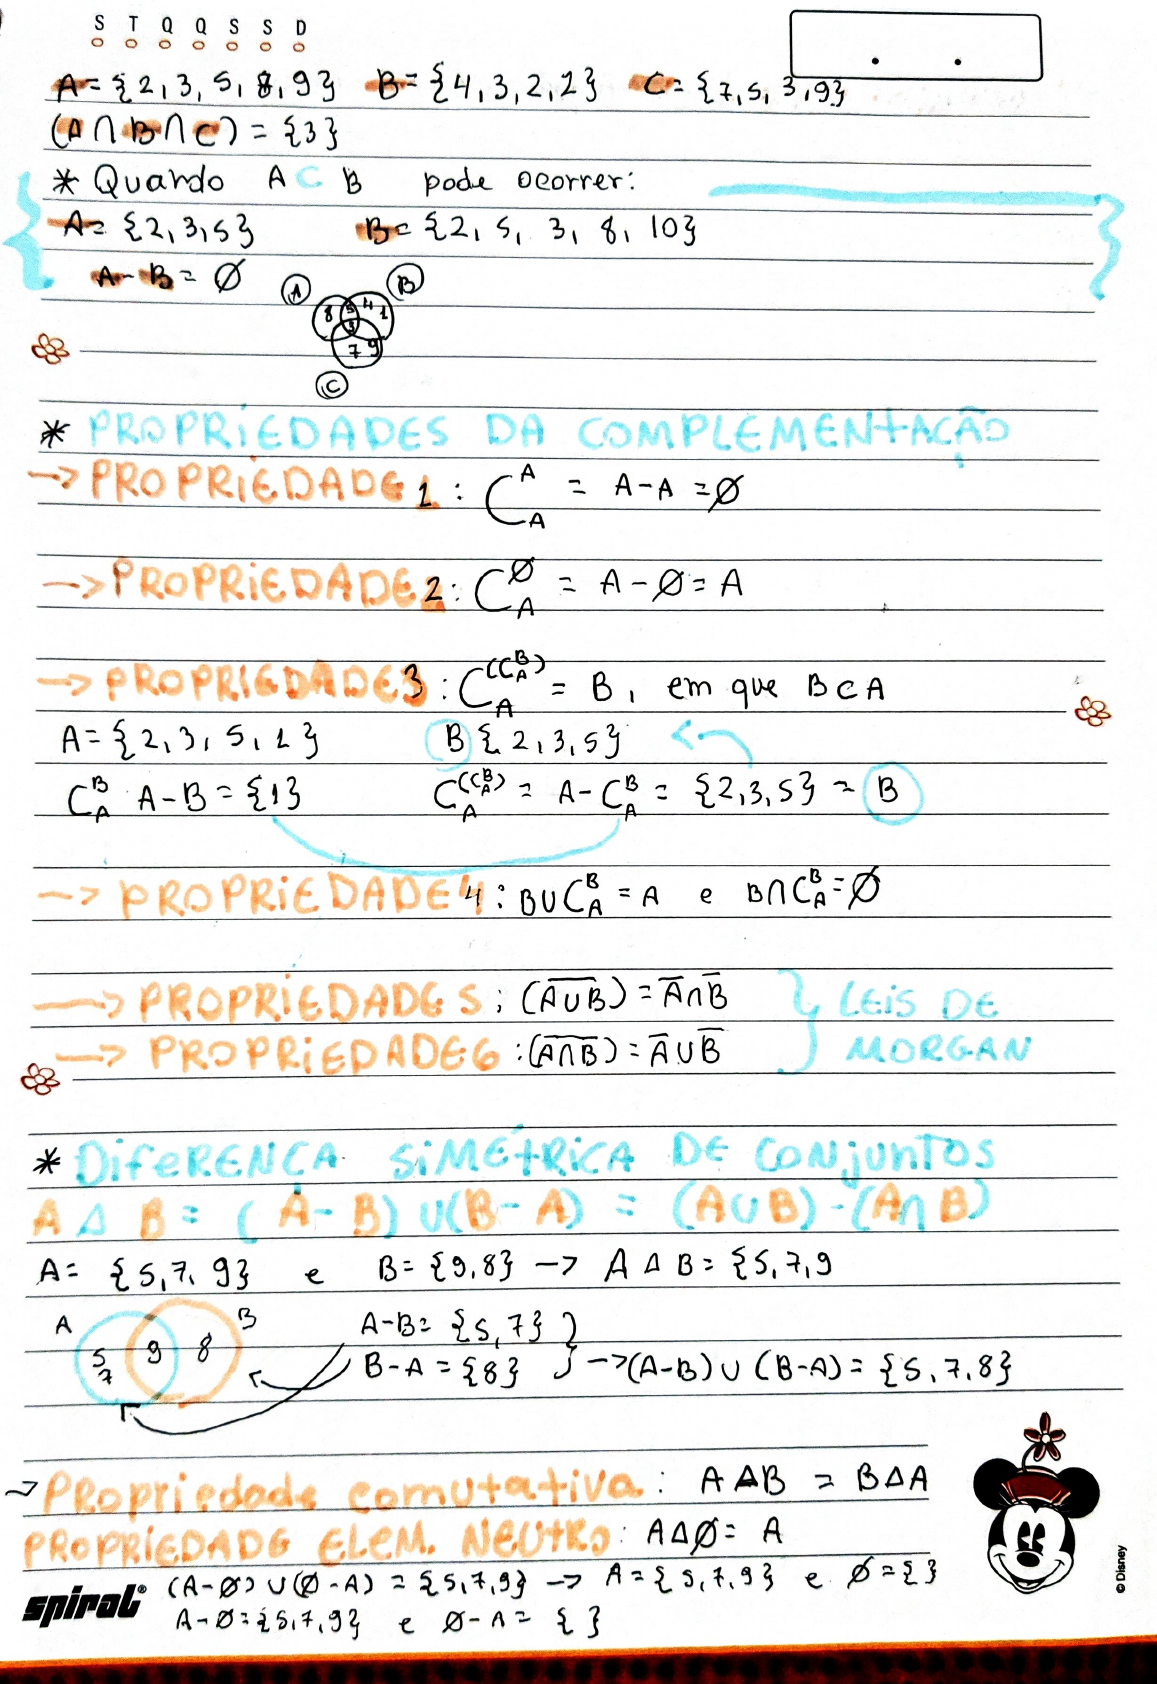 S T Q Q S S D
A = {2, 3, 5, 8, 9} B = {4, 3, 2, 1} C = {7, 5, 3, 9}
(A ∩ B ∩ C) = {3}
* Quando A ⊂ B pode ocorrer:
A = {2, 3, 5} B = {2, 5, 3, 8, 10}
A - B = Ø
A B
8 5 4 1
3
7 9
C
* PROPRIEDADES DA COMPLEMENTAÇÃO
-> PROPRIEDADE 1 : C_A^A = A - A = Ø
-> PROPRIEDADE 2 : C_A^Ø = A - Ø = A
-> PROPRIEDADE 3 : C_A^(C_A^B) = B, em que B ⊂ A
A = {2, 3, 5, 1} B {2, 3, 5}
C_A^B A - B = {1} C_A^(C_A^B) = A - C_A^B = {2, 3, 5} = B
-> PROPRIEDADE 4 : B ∪ C_A^B = A e B ∩ C_A^B = Ø
-> PROPRIEDADE 5 : (A̅ ̅∪̅ ̅B̅) = A̅ ∩ B̅ } LEIS DE
-> PROPRIEDADE 6 : (A̅ ̅∩̅ ̅B̅) = A̅ ∪ B̅ MORGAN
* DIFERENCA SIMÉTRICA DE CONJUNTOS
A Δ B = (A - B) ∪ (B - A) = (A ∪ B) - (A ∩ B)
A = {5, 7, 9} e B = {9, 8} -> A Δ B = {5, 7, 9
A B A - B = {5, 7} }
5 7 9 8 B - A = {8} -> (A - B) ∪ (B - A) = {5, 7, 8}
-> Propriedade comutativa : A Δ B = B Δ A
PROPRIEDADE ELEM. NEUTRO : A Δ Ø = A
(A - Ø) ∪ (Ø - A) = {5, 7, 9} -> A = {5, 7, 9} e Ø = { }
A - Ø = {5, 7, 9} e Ø - A = { }
spiral®
© Disney